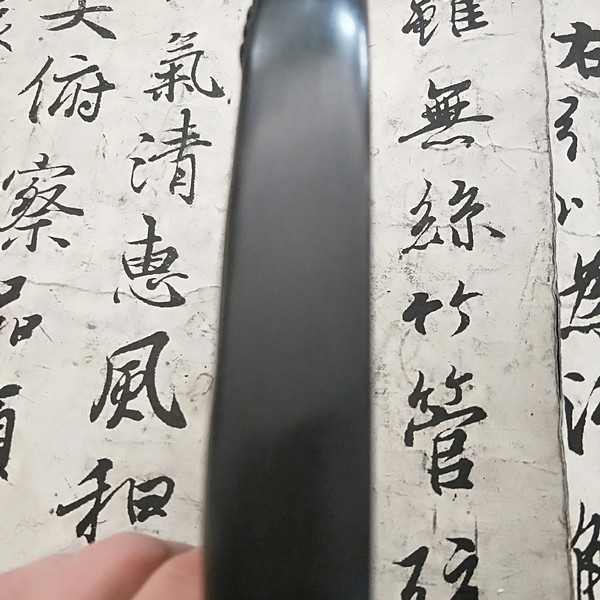 右引以為流觴
雖無絲竹管弦
氣清惠風和
大俯察品類